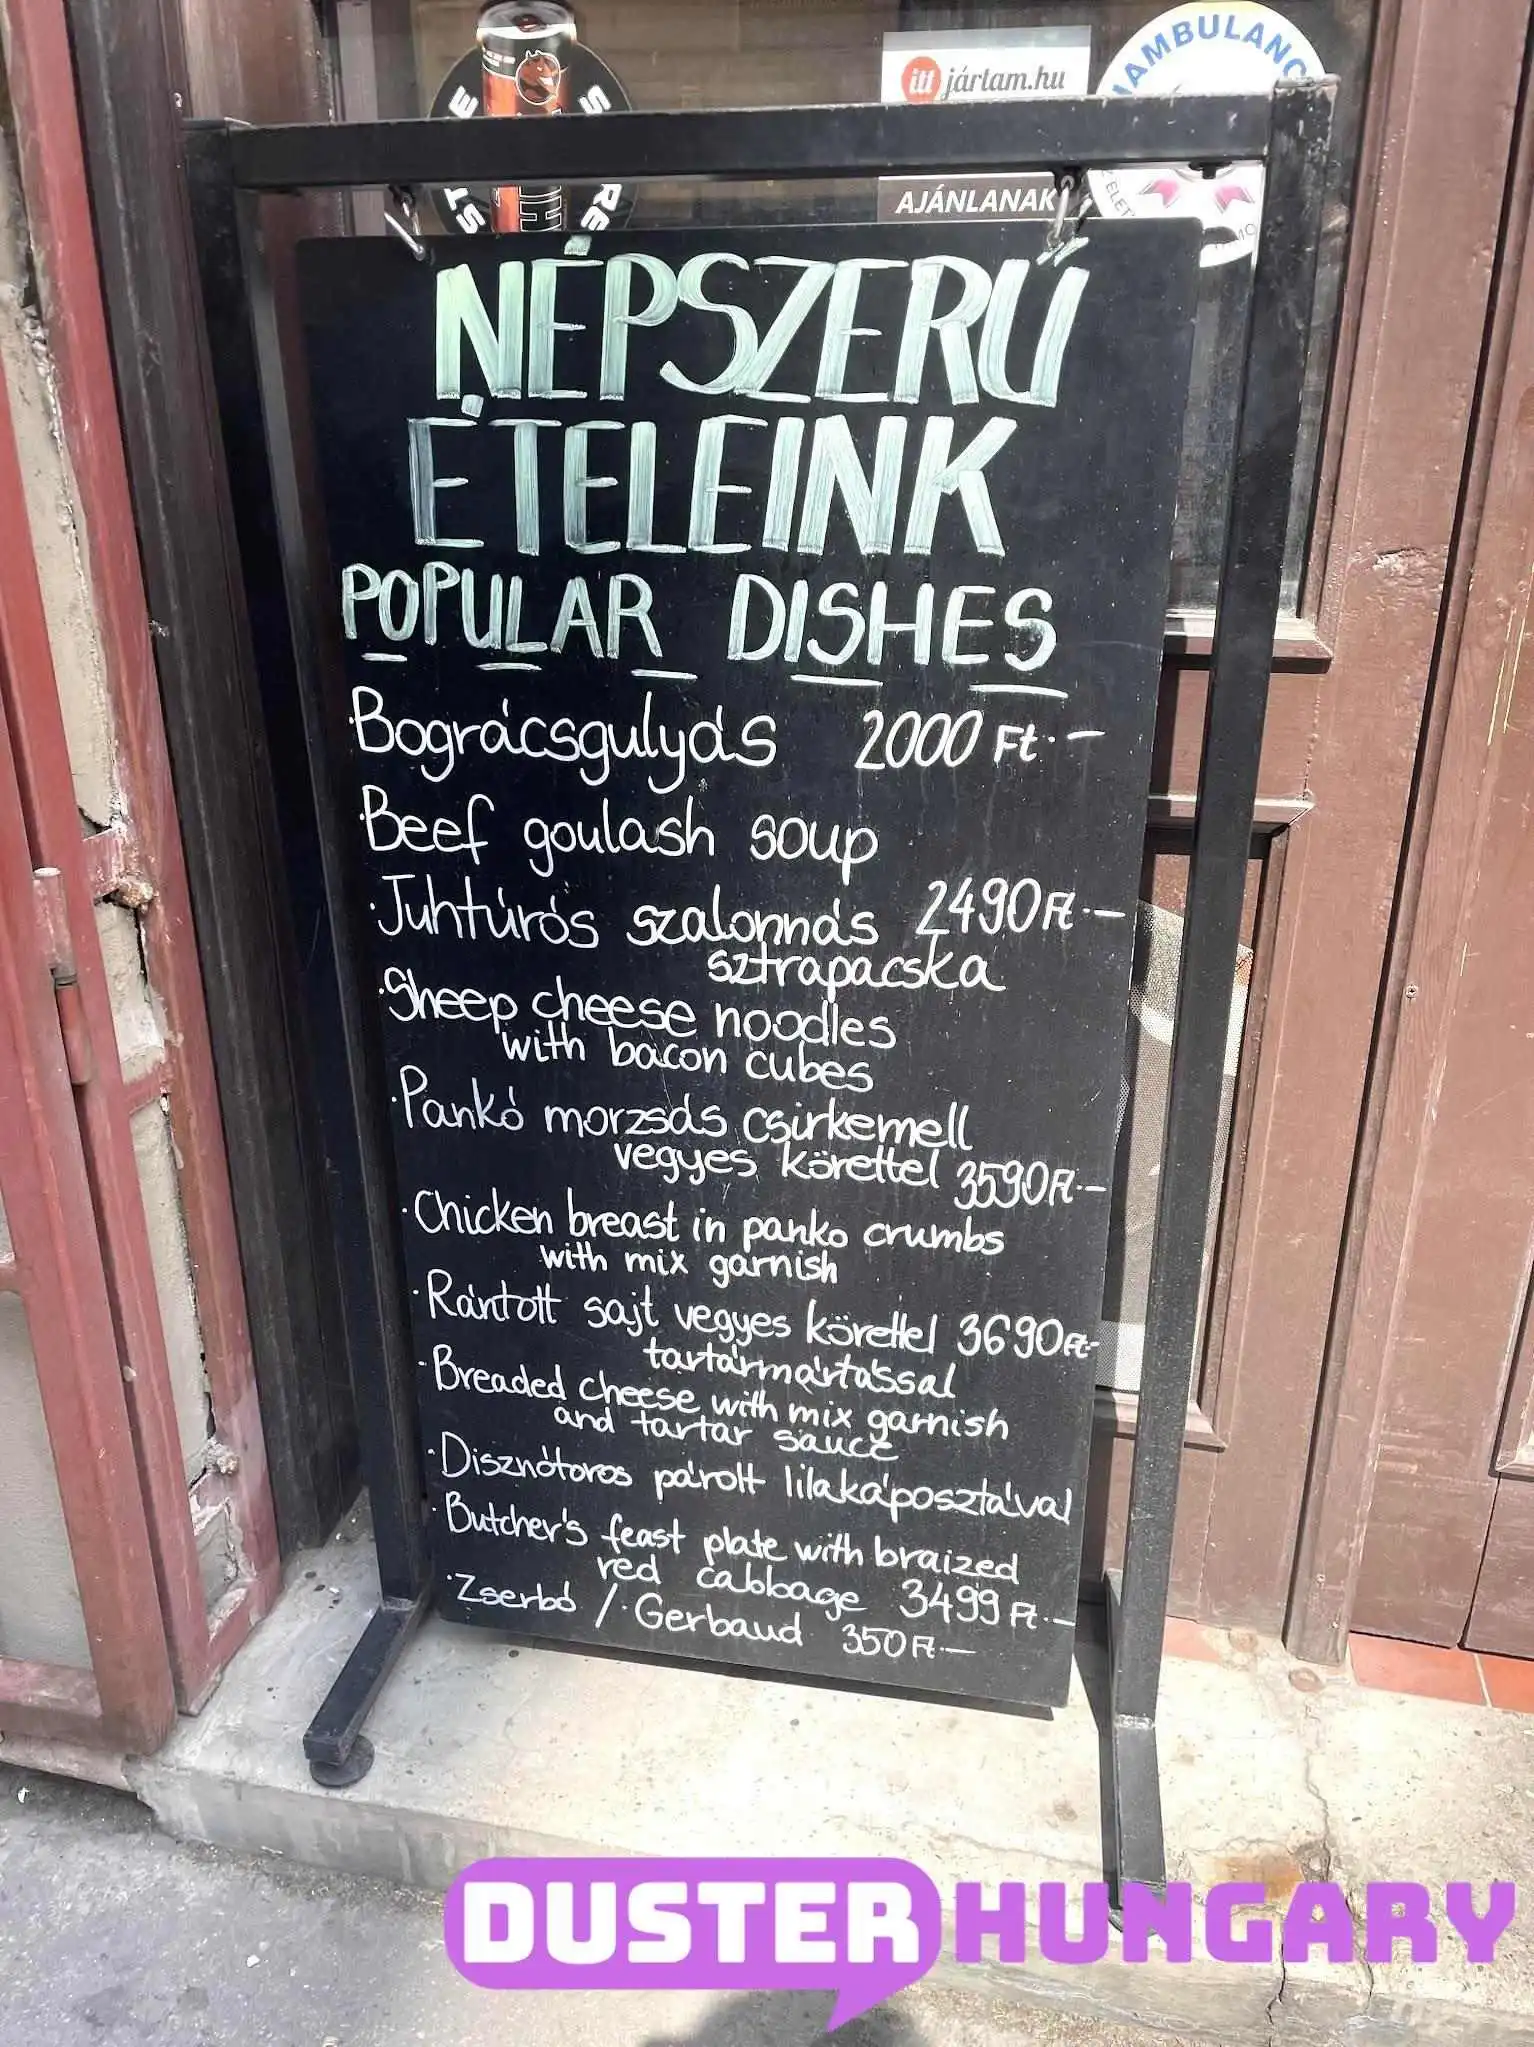 itt jártam.hu
AMBULANC
AJÁNLANAK
NÉPSZERŰ
ÉTELEINK
POPULAR DISHES
Bográcsgulyás 2000 Ft.-
Beef goulash soup
Juhtúrós szalonnás 2490 Ft.-
sztrapacska
Sheep cheese noodles
with bacon cubes
Pankó morzsás csirkemell
vegyes körettel 3590 Ft.-
Chicken breast in panko crumbs
with mix garnish
Rántott sajt vegyes körettel 3690 Ft-
tartármártással
Breaded cheese with mix garnish
and tartar sauce
Disznótoros párolt lilakáposztával
Butcher's feast plate with braized
red cabbage 3499 Ft.-
Zserbó / Gerbaud 350 Ft.-
DUSTER HUNGARY